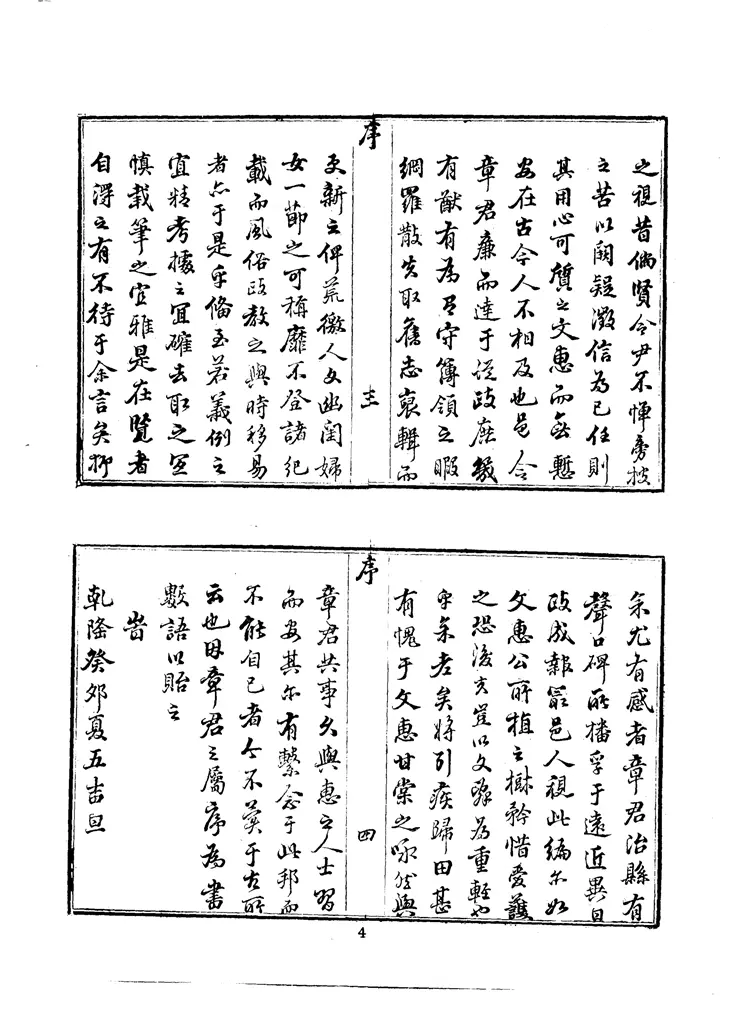 之視昔倘賢令尹不憚旁搜
之苦以闕疑徵信為己任則
其用心可質之文惠而無慙
安在古今人不相及也邑令
章君廉而達于從政庶幾
有猷有為有守簿領之暇
網羅散失取舊志裒輯而
序
三
更新之俾荒徼人文幽閨婦
女一節之可稱靡不登諸紀
載而風俗政教之與時移易
者亦于是乎備至若義例之
宜精考據之宜確去取之宜
慎載筆之宜雅是在覽者
自得之有不待于余言矣抑
余尤有感者章君治縣有
聲口碑所播孚于遠近異日
政成報最邑人視此編亦如
文惠公所植之樹矜惜愛護
之恐後夫豈以文辭為重輕也
乎余老矣將引疾歸田甚
有愧于文惠甘棠之咏然與
序
四
章君共事久與惠之人士習
而安其亦有繫念于此邦而
不能自已者亦不異于古所
云也因章君之屬序為書
數語以貽之
峕
乾隆癸卯夏五吉旦
4